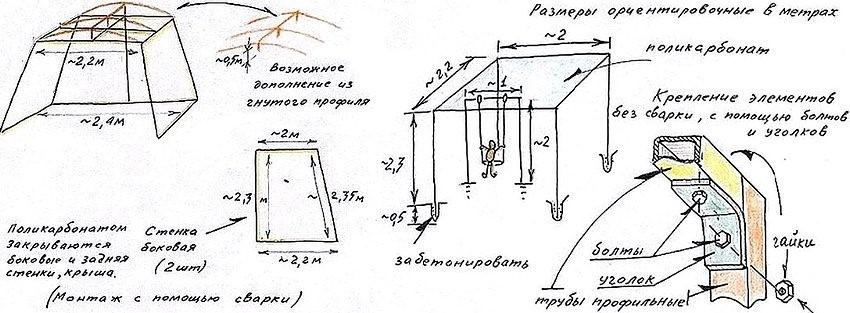 ~2,2м
~2,4м
~0,5м
Возможное
дополнение из
гнутого профиля
~2м
~2,3 м
~ 2,35м
~2,2м
Поликарбонатом
закрываются
боковые и задняя
стенки, крыша.
Стенка
боковая
(2шт)
(Монтаж с помощью сварки)
Размеры ориентировочные в метрах
~2
~2,2
поликарбонат
~1
~2
~2,3
~0,5
забетонировать
Крепление элементов
без сварки, с помощью болтов
и уголков
болты
уголок
трубы профильные
гайки